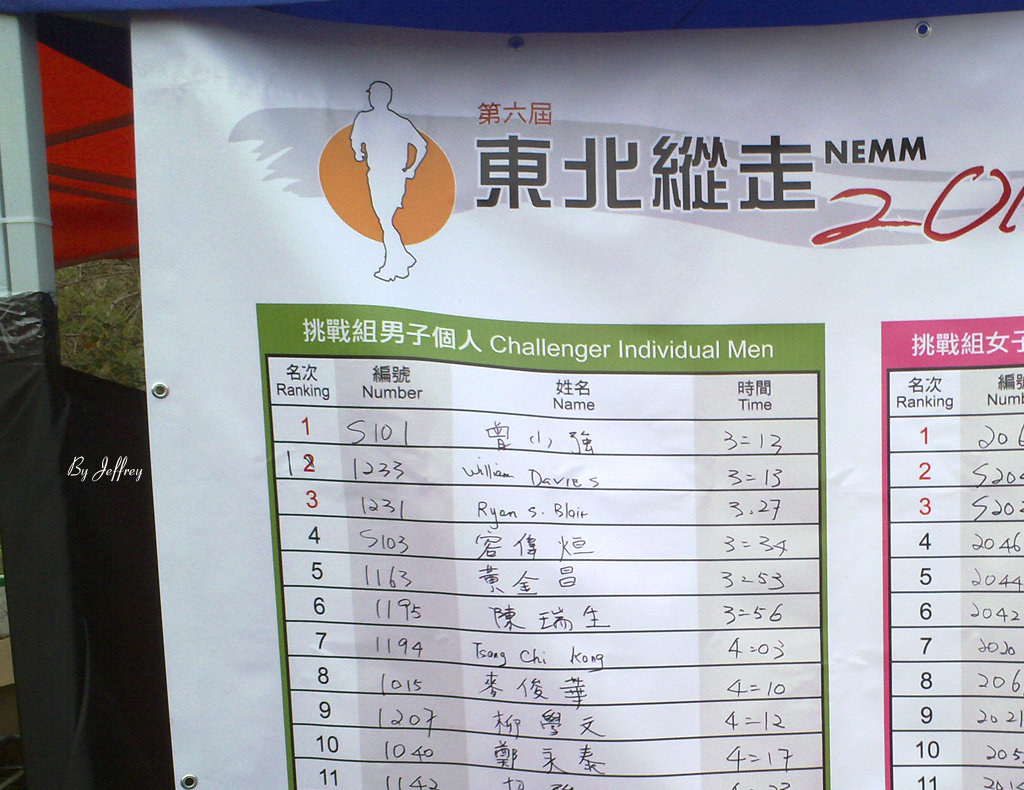 第六屆
東北縱走 NEMM
挑戰組男子個人 Challenger Individual Men
名次 編號 姓名 時間
Ranking Number Name Time
1 S101 曾小強 3=13
1 1233 William Davies 3=13
3 1231 Ryan S. Blair 3.27
4 S103 容偉烜 3=34
5 1163 黃金昌 3=53
6 1195 陳瑞生 3=56
7 1194 Tsang Chi Kong 4=03
8 1015 麥俊華 4=10
9 1207 柳學文 4=12
10 1040 鄭永泰 4=17
11 1142
挑戰組女子
名次
Ranking
1
2
3
4 2046
5 2044
6 2042
7 2020
8
9 2021
10
11
By Jeffrey